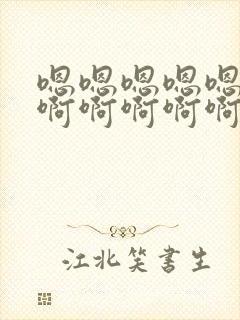 嗯嗯嗯嗯嗯
啊啊啊啊啊
江北笑書生